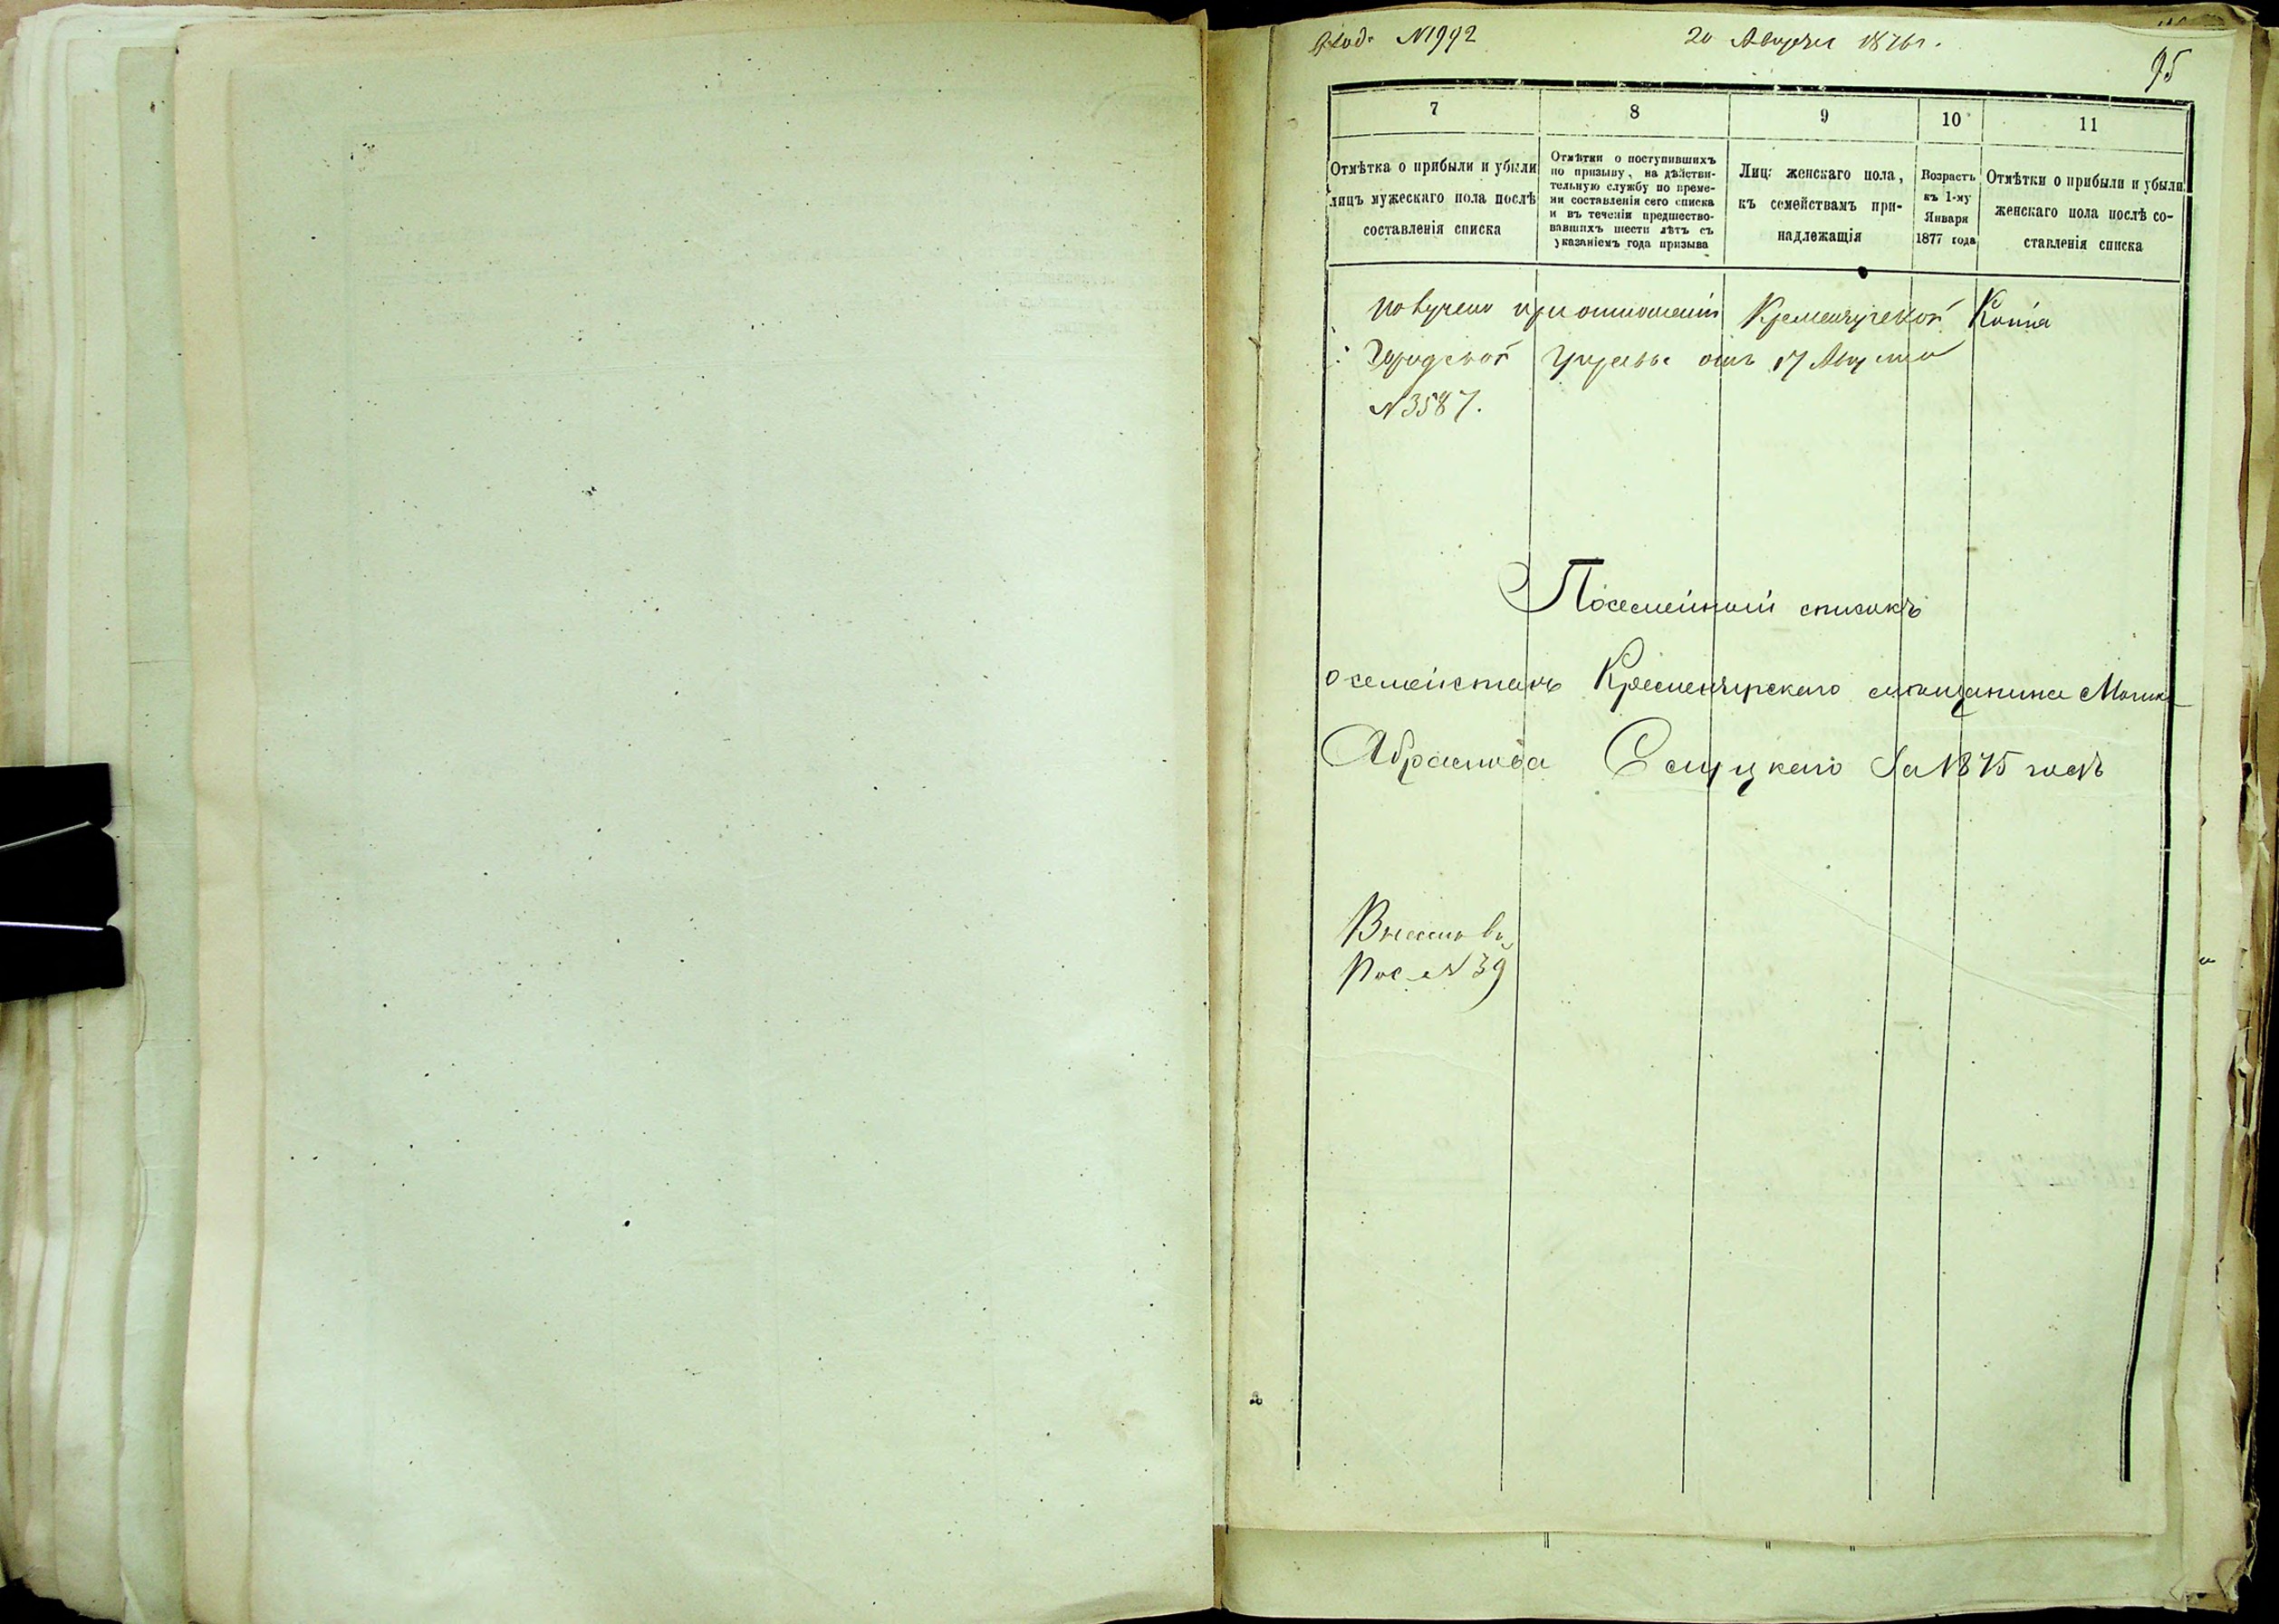 Вход. N1992 20 Августа 1876 г.
95
7 8 9 10 11
Отмѣтка о прибыли и убыли
лицъ мужескаго пола послѣ
составленія списка
Отмѣтки о поступившихъ
по призыву, на дѣйстви-
тельную службу по време-
ни составленія сего списка
и въ теченіи предшество-
вавшихъ шести лѣтъ съ
указаніемъ года призыва
Лицъ женскаго пола,
къ семействамъ при-
надлежащія
Возрастъ
къ 1-му
Января
1877 года
Отмѣтки о прибыли и убыли
женскаго пола послѣ со-
ставленія списка
Получено при отношеніи Кременчугской Копія
Городской Управы отъ 17 Августа
N 3587.
Посемейный списокъ
о семействѣ Кременчугскаго мѣщанина
Абрамова Слуцкаго За 1875 годъ
Внесено въ
Пос. N 39